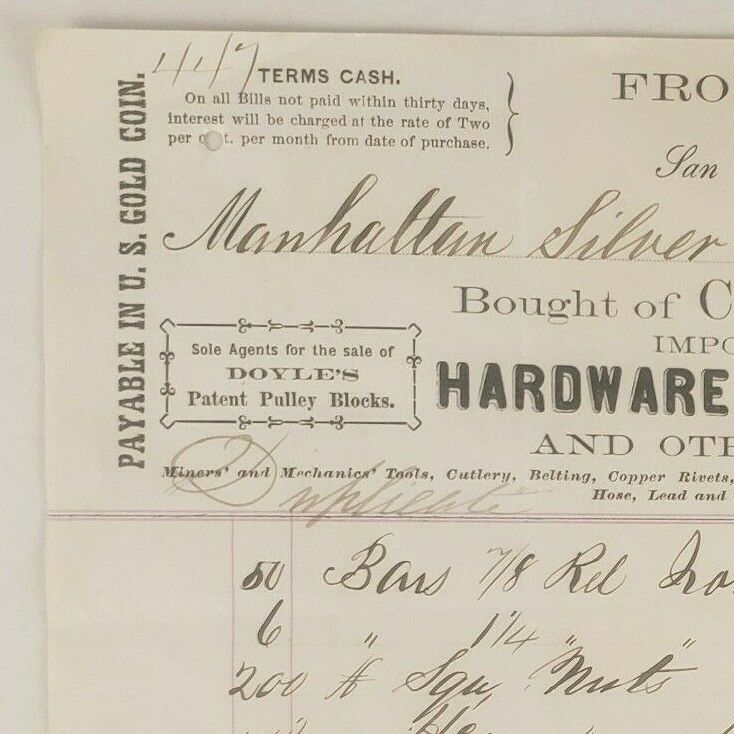 447
TERMS CASH.
On all Bills not paid within thirty days,
interest will be charged at the rate of Two
per c t. per month from date of purchase.
FRO
San
PAYABLE IN U. S. GOLD COIN.
Manhattan Silver
Bought of C
IMPO
Sole Agents for the sale of
DOYLE'S
Patent Pulley Blocks.
HARDWARE
AND OTH
Miners' and Mechanics' Tools, Cutlery, Belting, Copper Rivets,
Hose, Lead and
Duplicate
50 Bars 7/8 Rd Iro
6 " 1 1/4 " "
200 # Squ Nuts